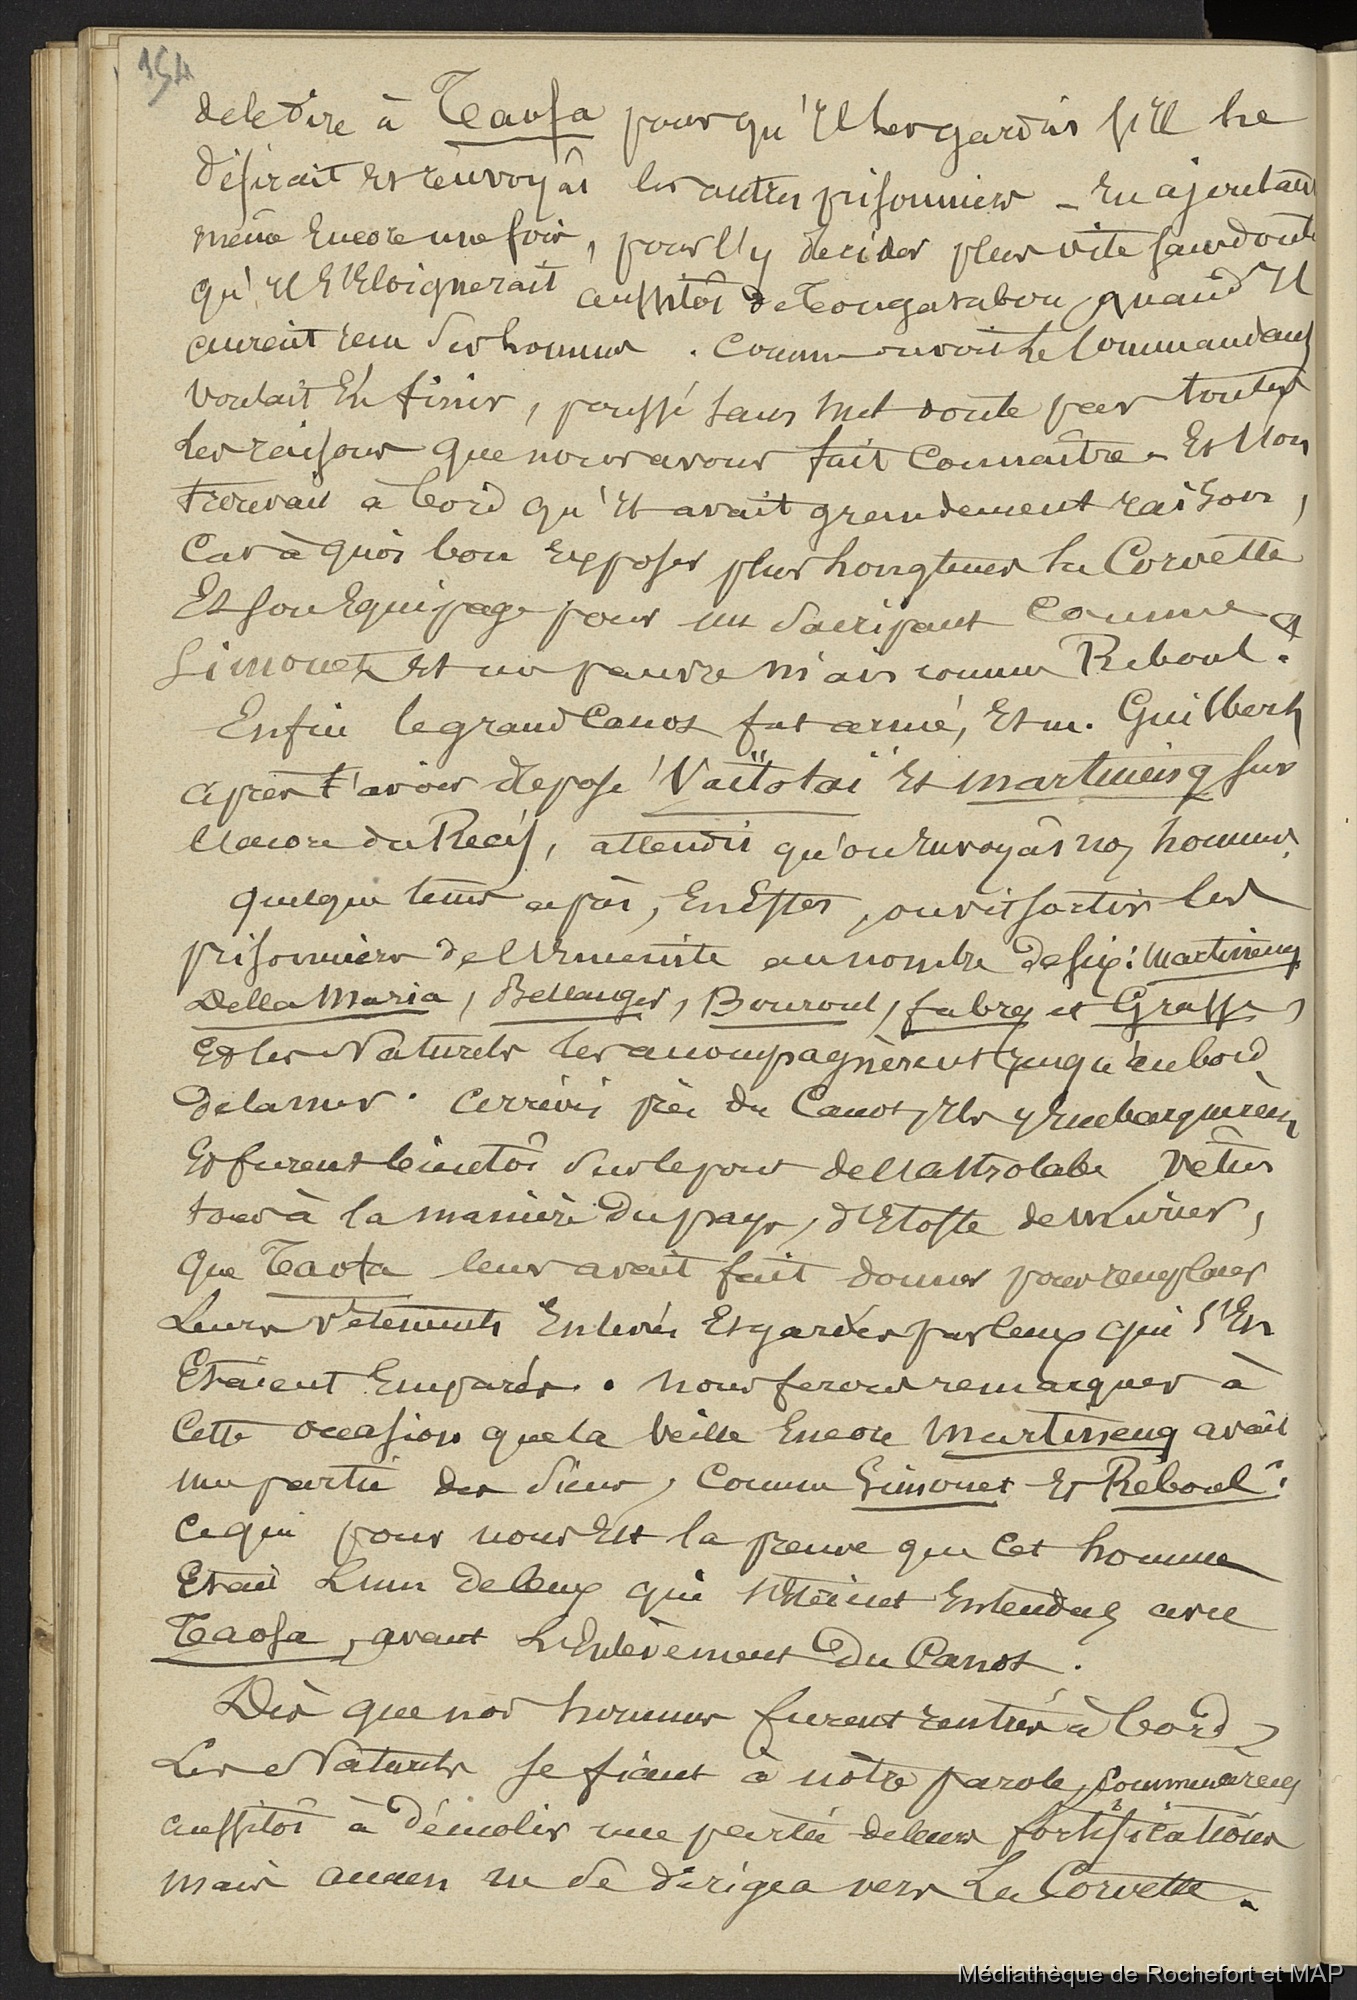 154
de le dire à Taofa pour qu'il les gardât s'il le
désirait et renvoyât les autres prisonniers _ En ajoutant
même Encore une fois, pour l'y décider plus vite sans doute
qu'il s'Eloignerait aussitôt de Tongatabou, quand il
aurait reçu ses hommes. Comme on voit le Commandant
voulait En finir, poussé sans nul doute par toutes
les raisons que nous avons fait Connaître _ Et l'on
trouvait à bord qu'il avait grandement raison,
Car à quoi bon Exposer plus longtems la Corvette
Et son Equipage pour un sacripant Comme
Simonet, et un pauvre niais comme Reboul.
Enfin le grand Canot fut armé, Et m. Guilbert
après avoir déposé Vaïtotaï Et Martineng sur
l'acore du Récif, attendit qu'on renvoyât nos hommes.
quelque tems après, En Effet, on vit sortir les
prisonniers de l'Enceinte au nombre de six: Martineng
Della Maria, Bellanger, Bouroul, fabry et Grasse,
Et les Naturels les accompagnèrent jusqu'au bord
de la mer. arrivés près du Canot, ils y Embarquèrent
Et furent bientôt sur le pont de l'Astrolabe vêtus
tous à la manière du pays, d'Etoffe de mûrier,
que Taofa leur avait fait donner pour remplacer
Leurs vêtements Enlevés Et gardés par ceux qui s'En
Etaient Emparés. nous ferons remarquer à
Cette occasion que la veille Encore Martineng avait
pour nous Est la preuve que Cet homme
Etait L'un de ceux qui s'étaient Entendus avec
Taofa, avant L'Enlèvement du Canot.
Dès que nos hommes furent rentrés à bord,
Les Naturels se fiant à notre parole, Commencèrent
aussitôt à démolir une partie de leurs fortifications
mais aucun ne se dirigea vers La Corvette.
Médiathèque de Rochefort et MAP